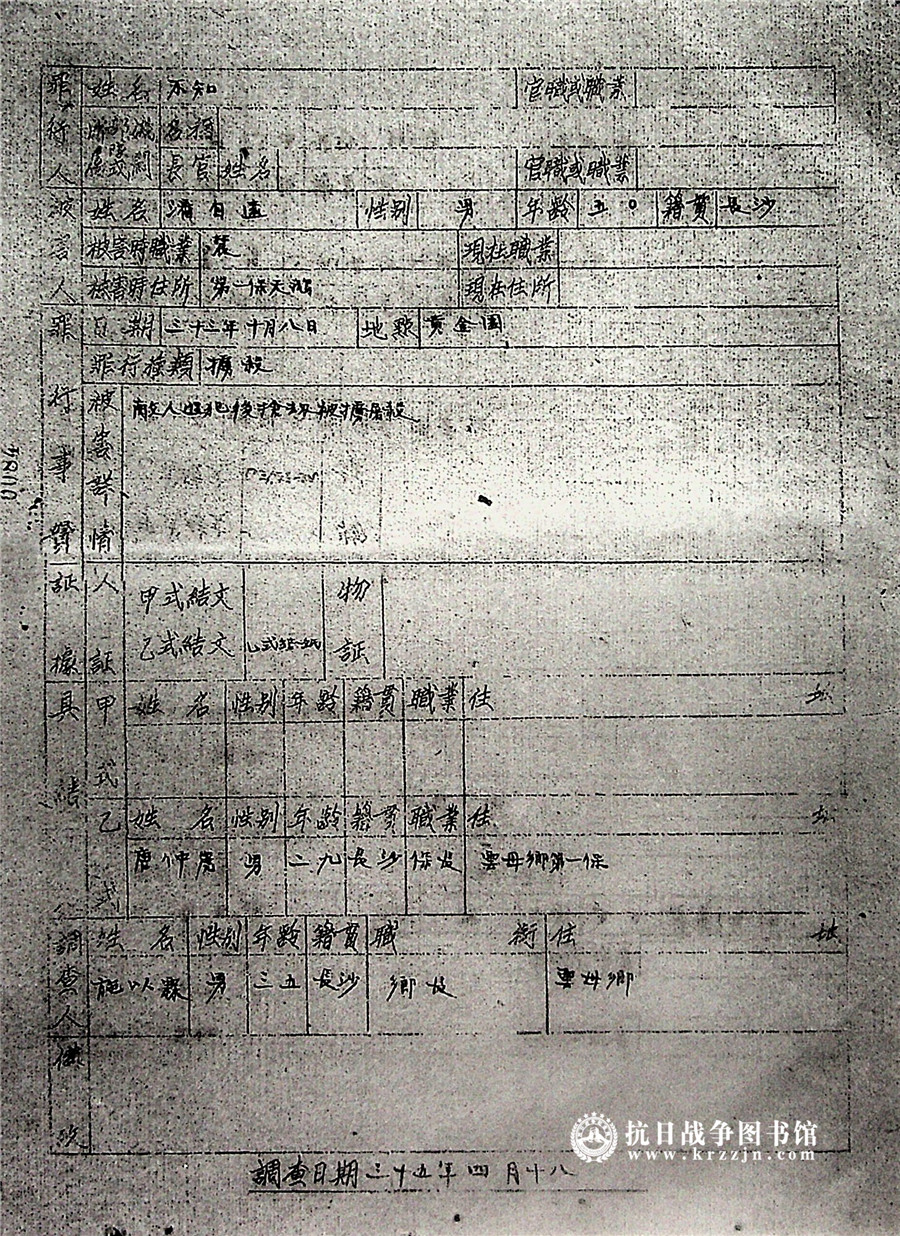 罪行人 姓名 不知 官職或職業
所部或
屬機關 名稱
長官 姓名 官職或職業
被害人 姓名 自遠 性别 男 年齡 五〇 籍貫 長沙
被害時職業 農 現在職業
被害時住所 第一保 現在住所
罪行事實 日期 三十三年十月八日 地點 黄金園
罪行種類 擄殺
被害詳情 敵人
01184
証據 人証 甲式結文 物証
乙式結文 乙式結一紙
具結 甲式 姓名 性别 年齡 籍貫 職業 住址
乙式 姓名 性别 年齡 籍貫 職業 住址
唐仲虎 男 二九 長沙 保長 雲母鄉第一保
調查人 姓名 性别 年齡 籍貫 職銜 住址
施以 男 三五 長沙 鄉長 雲母鄉
備攷
調查日期三十五年四月十八
抗日战争图书馆
www.krzzjn.com